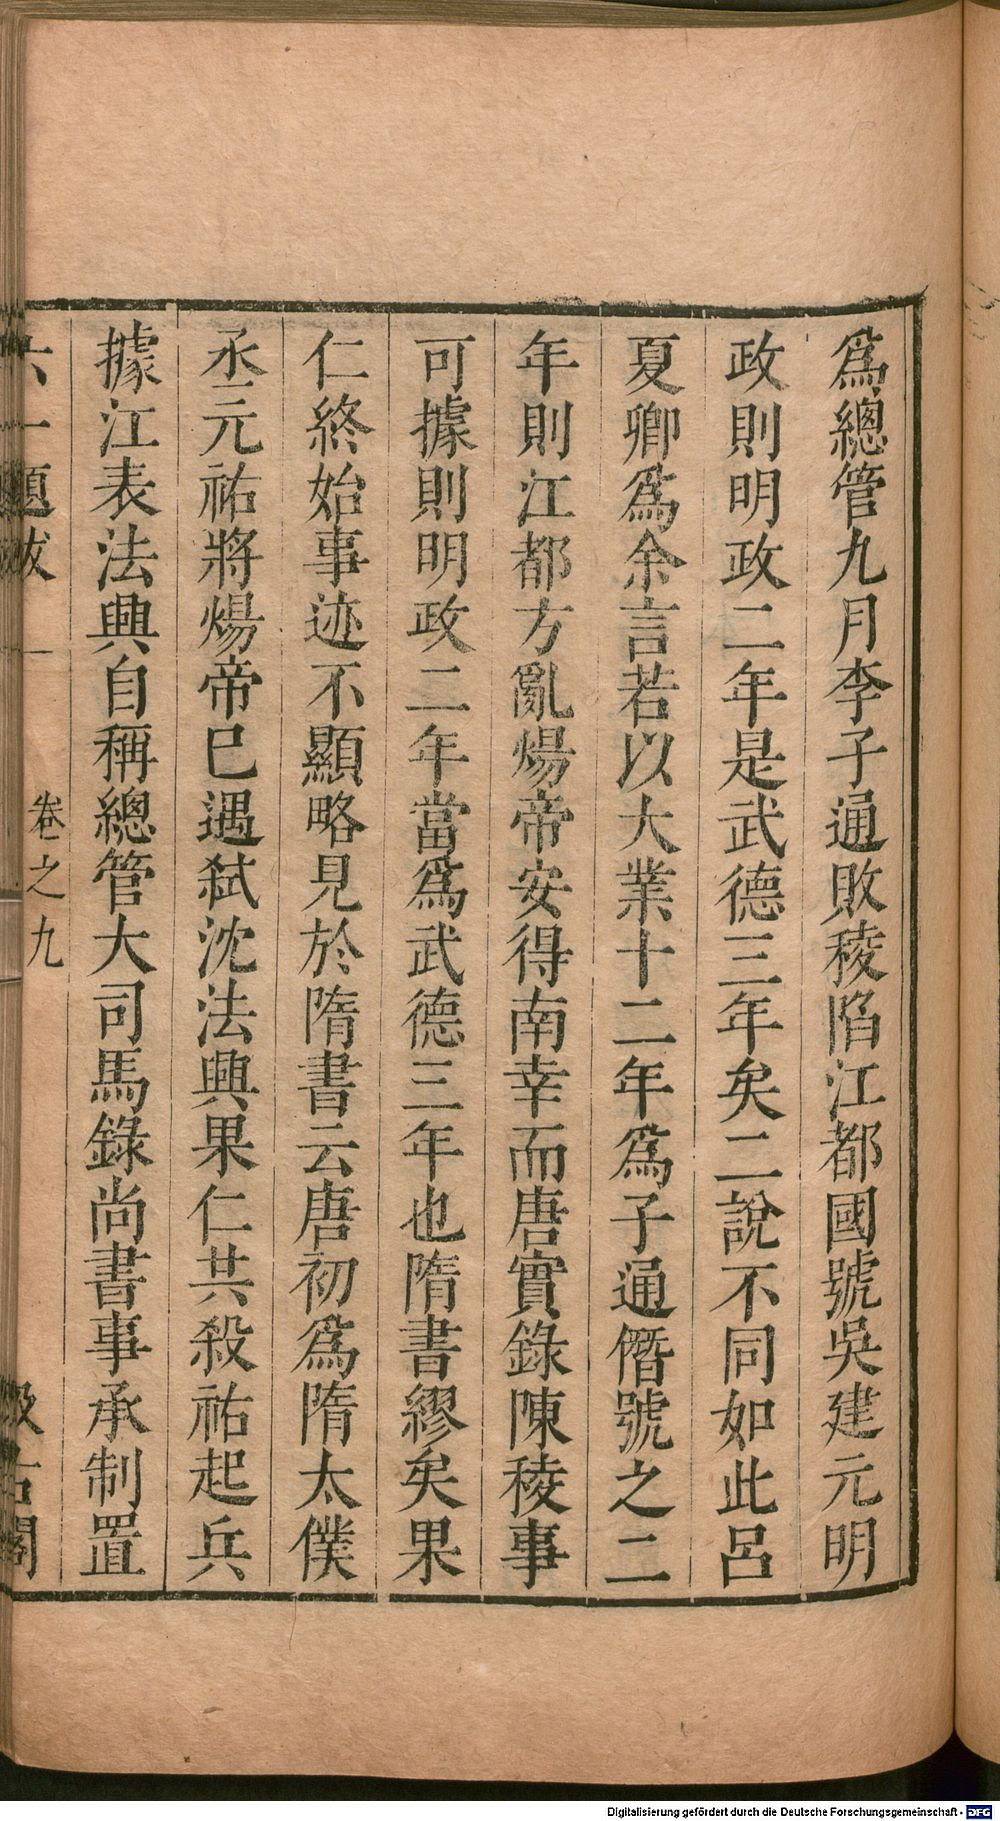 爲總管九月李子通敗稜陷江都國號吳建元明
政則明政二年是武德三年矣二說不同如此呂
夏卿爲余言若以大業十二年爲子通僭號之二
年則江都方亂煬帝安得南幸而唐實錄陳稜事
可據則明政二年當爲武德三年也隋書繆矣果
仁終始事迹不顯略見於隋書云唐初爲隋太僕
丞元祐將煬帝已遇弑沈法興果仁共殺祐起兵
據江表法興自稱總管大司馬錄尚書事承制置
六一題跋 卷之九 汲古閣
Digitalisierung gefördert durch die Deutsche Forschungsgemeinschaft - DFG